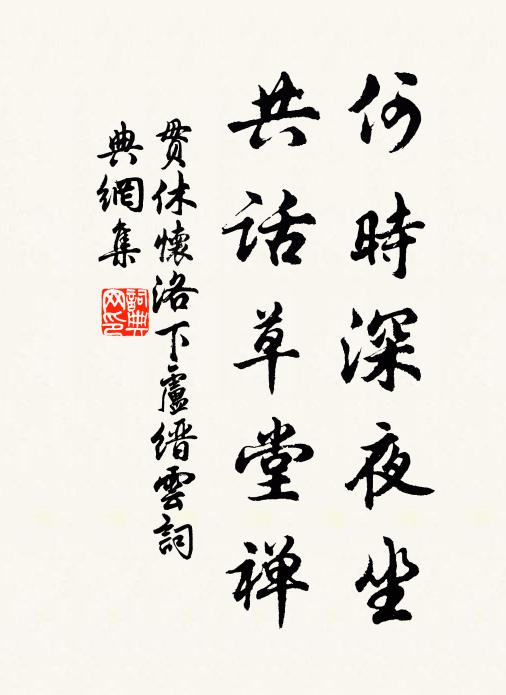 何時深夜坐
共话草堂禅
贯休懷洛下盧缙雲詞
典網集
詞典网印